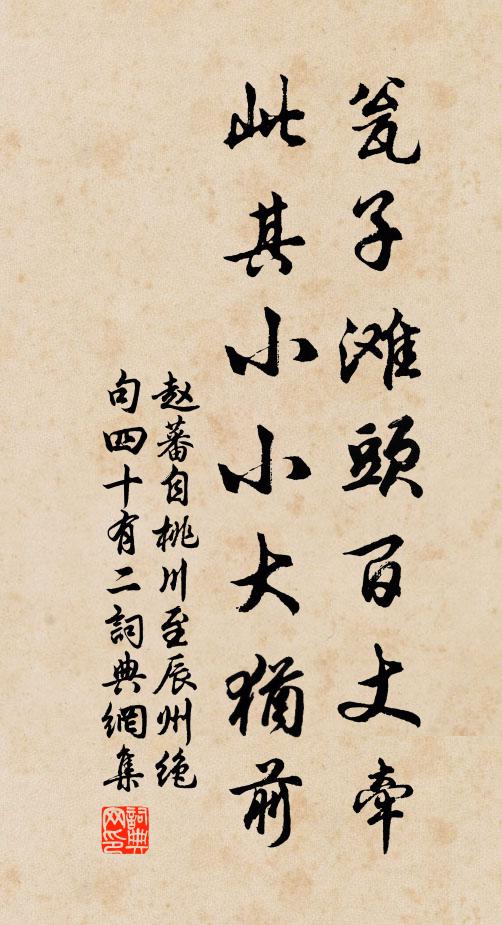 瓮子滩頭百丈牽
此其小小大猶前
赵蕃自桃川至辰州绝
句四十有二詞典網集
詞典网印